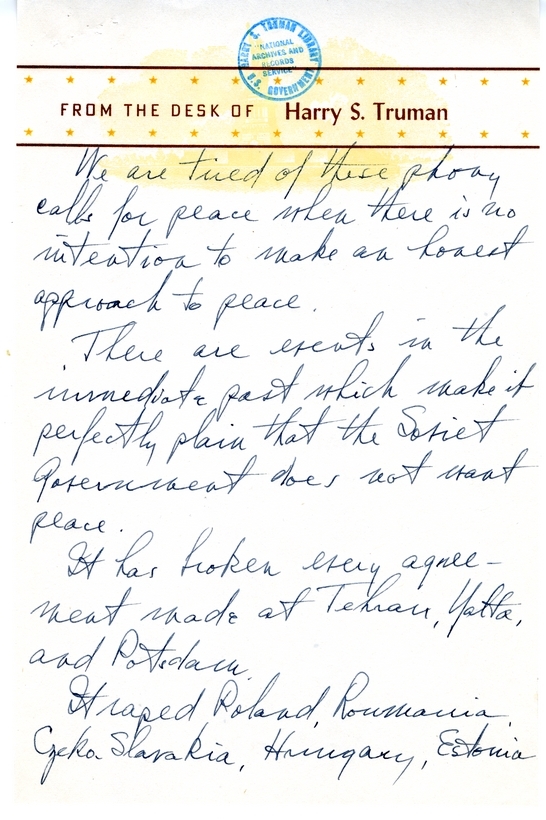 HARRY S. TRUMAN LIBRARY
NATIONAL
ARCHIVES AND
RECORDS
SERVICE
U.S. GOVERNMENT
FROM THE DESK OF Harry S. Truman
We are tired of these phony
calls for peace when there is no
intention to make an honest
approach to peace.
There are events in the
immediate past which make it
perfectly plain that the Soviet
Government does not want
peace.
It has broken every agree-
ment made at Tehran, Yalta,
and Potsdam.
It raped Poland, Roumania,
Czeko Slavakia, Hungary, Estonia